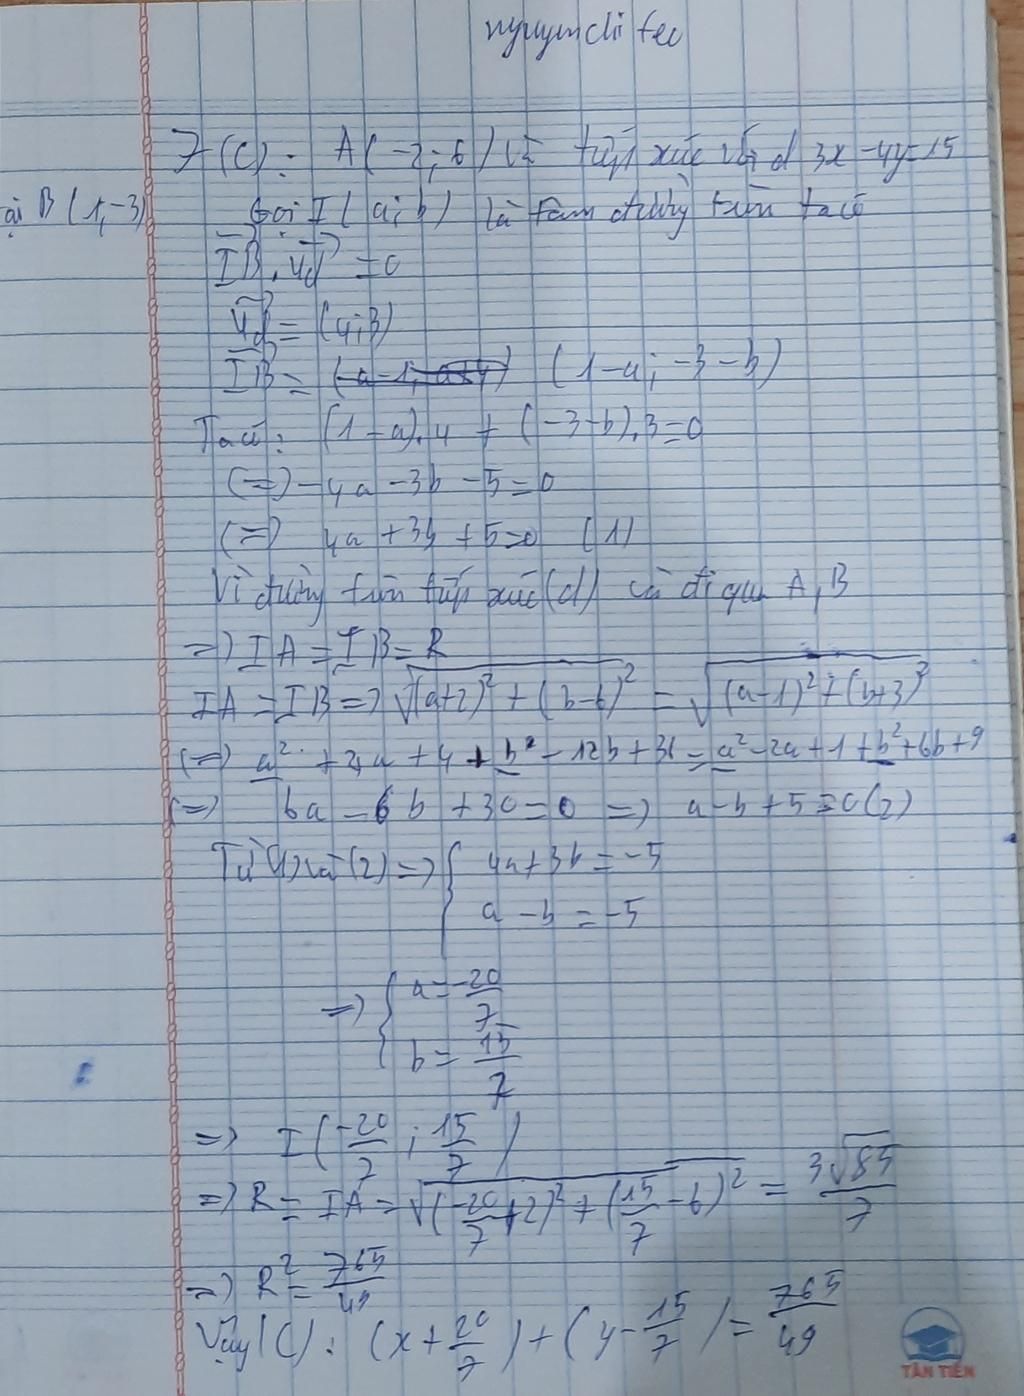 nguyen chi feo
7 (C): A(-2; 6) và tiếp xúc với d 3x - 4y = 15
tại B (1, -3) Gọi I (a; b) là tâm đường tròn ta có
IB⃗ . ud⃗ = 0
ud⃗ = (4; 3)
IB⃗ = (1 - a; -3 - b)
Ta có: (1 - a).4 + (-3 - b).3 = 0
(=) -4a - 3b - 5 = 0
(=) 4a + 3b + 5 = 0 (1)
Vì đường tròn tiếp xúc (d) và đi qua A, B
=> IA = IB = R
IA = IB => √((a+2)² + (b-6)²) = √((a-1)² + (b+3)²)
(=) a² + 4a + 4 + b² - 12b + 36 = a² - 2a + 1 + b² + 6b + 9
(=) 6a - 6b + 30 = 0 => a - b + 5 = 0 (2)
Từ (1) và (2) => { 4a + 3b = -5
a - b = -5
=> { a = -20/7
b = 15/7
=> I (-20/7 ; 15/7)
=> R = IA = √((-20/7 + 2)² + (15/7 - 6)²) = 3√85/7
=> R² = 765/49
Vậy (C): (x + 20/7) + (y - 15/7) = 765/49
TÂN TIẾN